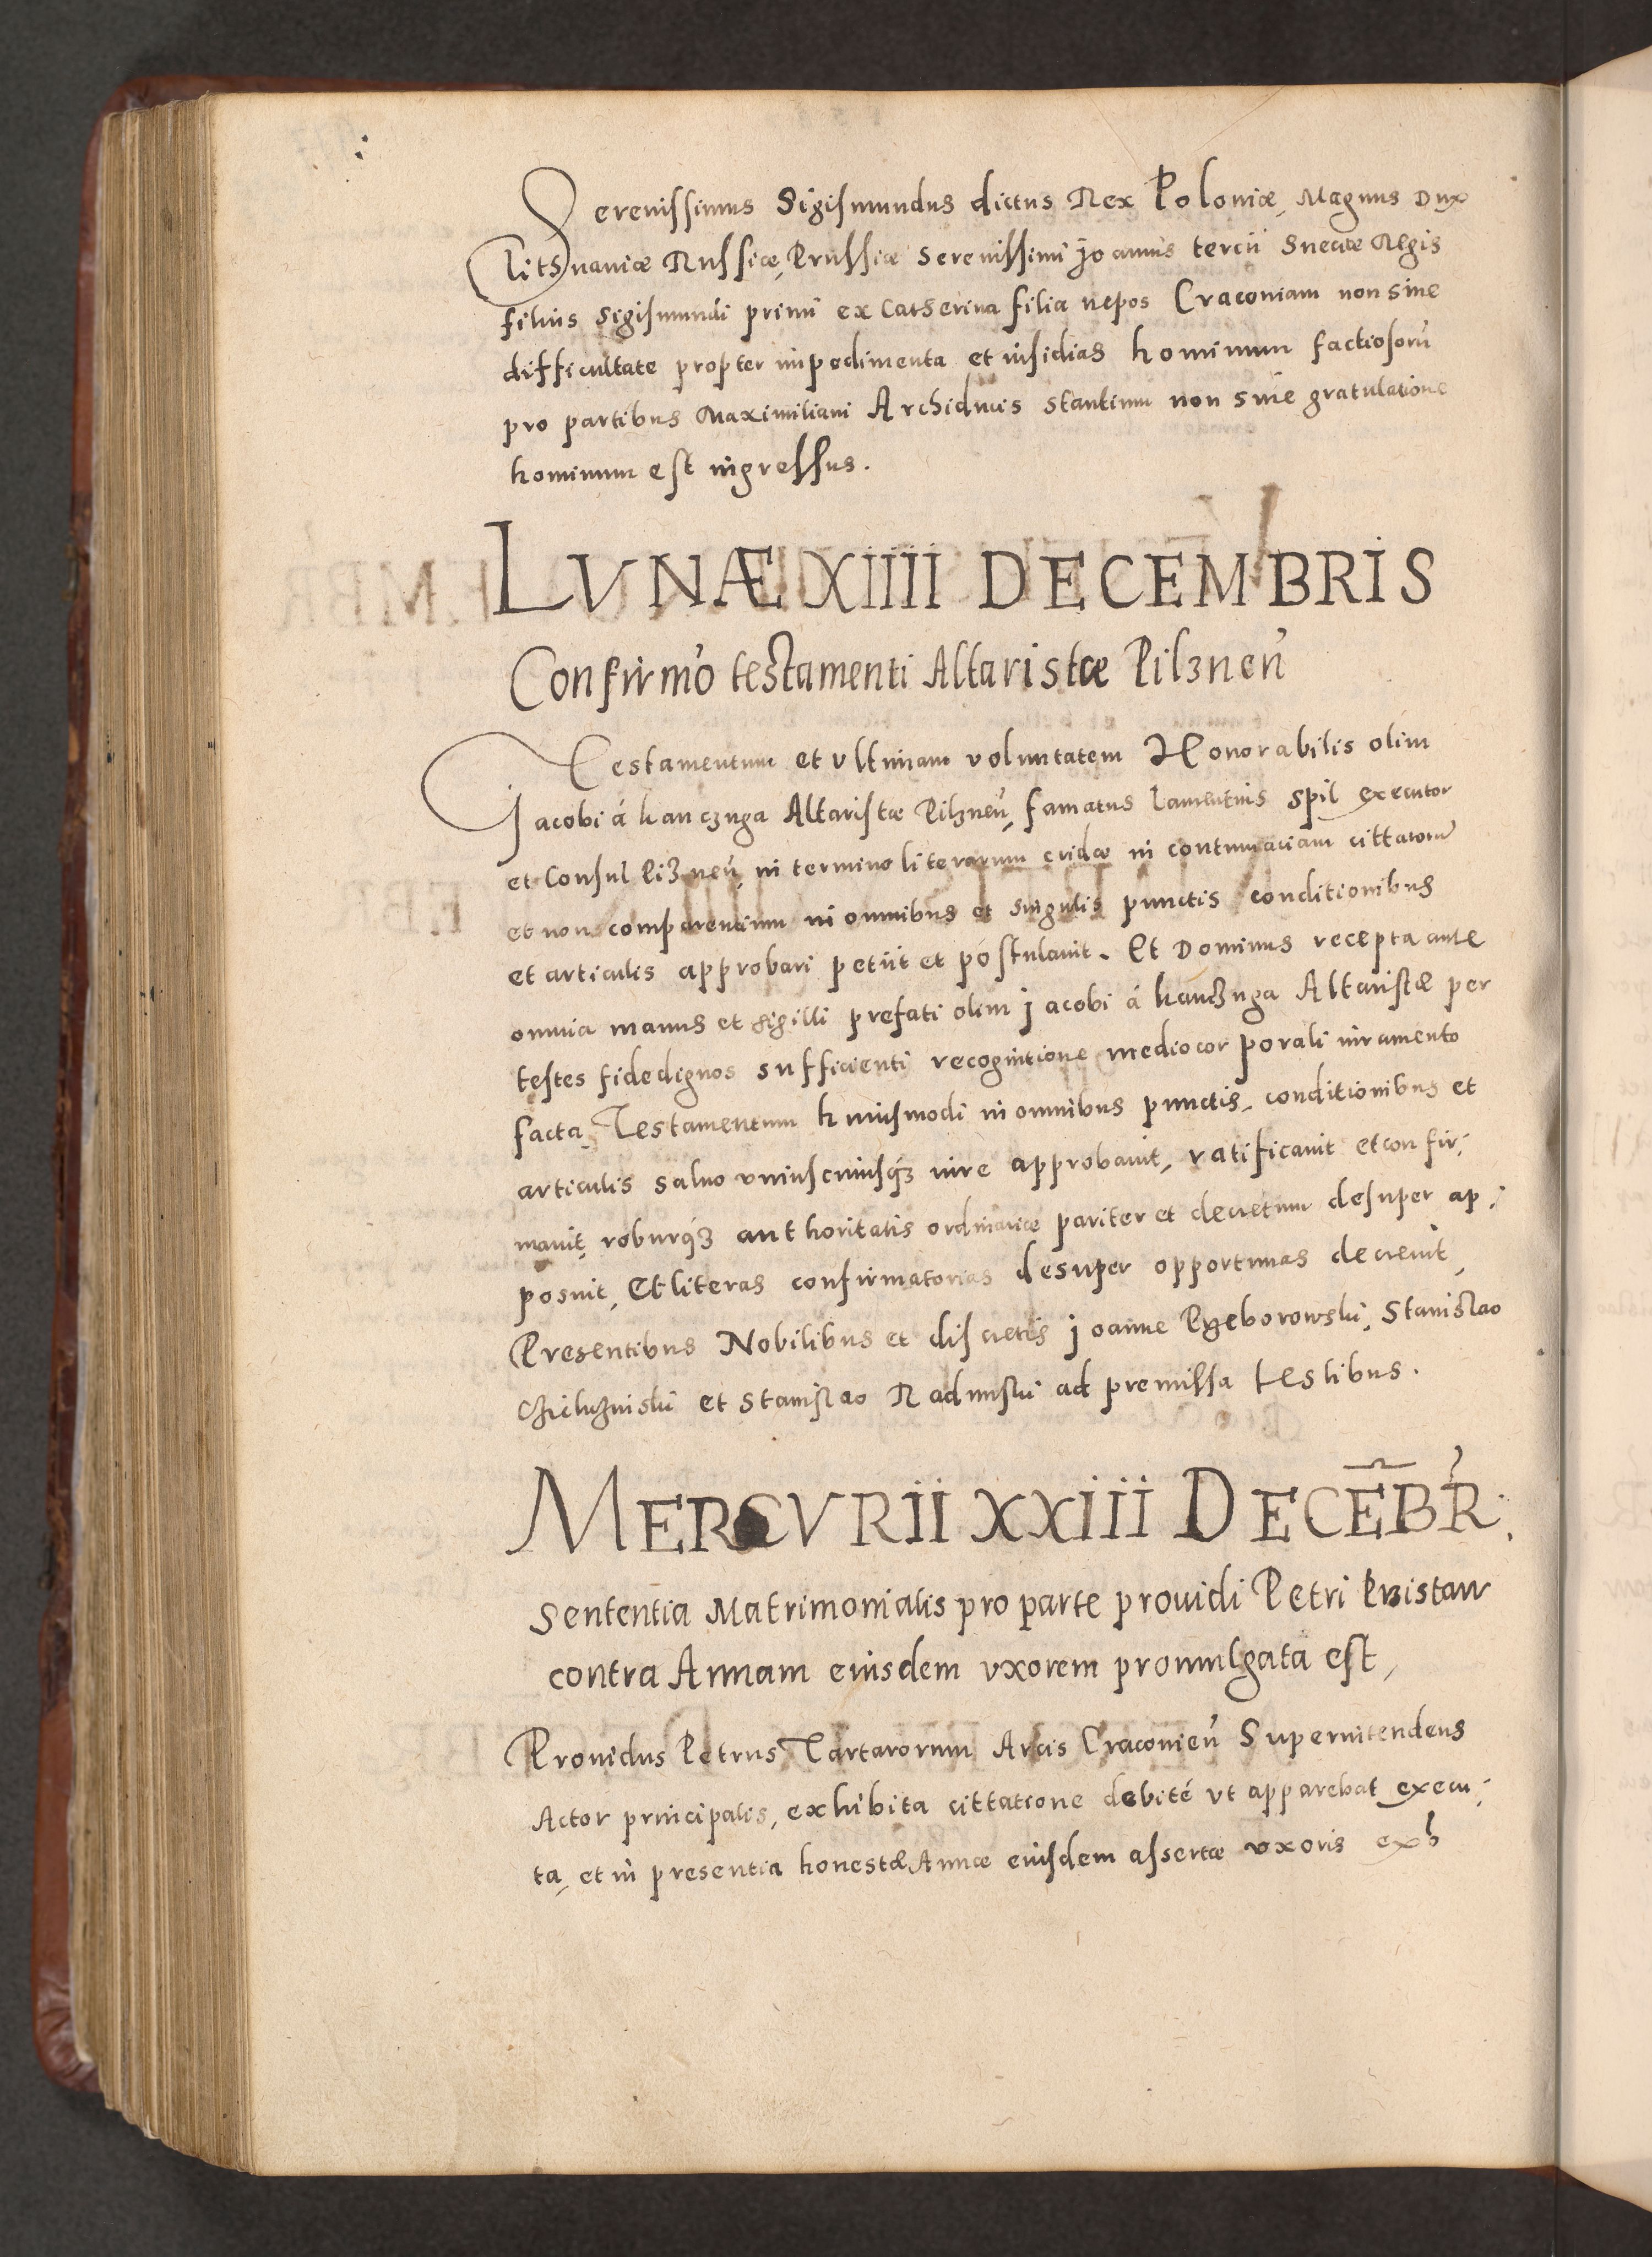 Serenissimus Sigismundus dictus Rex Poloniæ, Magnus Dux
Lithuaniæ Russiæ, Prussiæ Serenissimi Joannis tercii Sueciæ Regis
filius Sigismundi primi ex Catherina filia nepos Craconiam non sine
difficultate propter impedimenta et insidias hominum factiosorũ
pro partibus Maximiliani Archiducis stantium non sine gratulatione
hominum est ingressus.
LVNÆ XIIII DECEMBRIS
Confirmõ testamenti Altaristæ Pilznen̄
Testamentum et vltimam voluntatem Honorabilis olim
Jacobi á kanczuga Altaristæ Pilznen̄, famatus Laurentius Spil executor
et Consul Pilznen̄, in termino literarum cridæ in contumaciam cittatorum
et non comparentium in omnibus et singulis punctis conditionibus
et articulis approbari petiit et postulauit. Et Dominus recepta ante
omnia manus et sigilli prefati olim Jacobi á kanczuga Altaristæ per
testes fidedignos sufficienti recognitione mediocorporali iuramento
facta, Testamentum huiusmodi in omnibus punctis, conditionibus et
articulis saluo vniuscuiusq₃ iure approbauit, ratificauit et confir:
mauit, roburq₃ authoritatis ordinariæ pariter et decretum desuper ap:
posuit, Et literas confirmatorias desuper opportunas decreuit,
Presentibus Nobilibus et discretis Joanne Przeborowski, Stanislao
et Stanislao Radinski ad premissa testibus.
MERCVRII XXIII DECĒBR:
Sententia Matrimonialis pro parte prouidi Petri
contra Annam eiusdem vxorem promulgata est,
Prouidus Petrus Tartarorum Arcis Craconien̄ Superintendens
Actor principalis, exhibita cittatione debité vt apparebat execu:
ta, et in presentia honestæ Annæ eiusdem assertæ vxoris exb